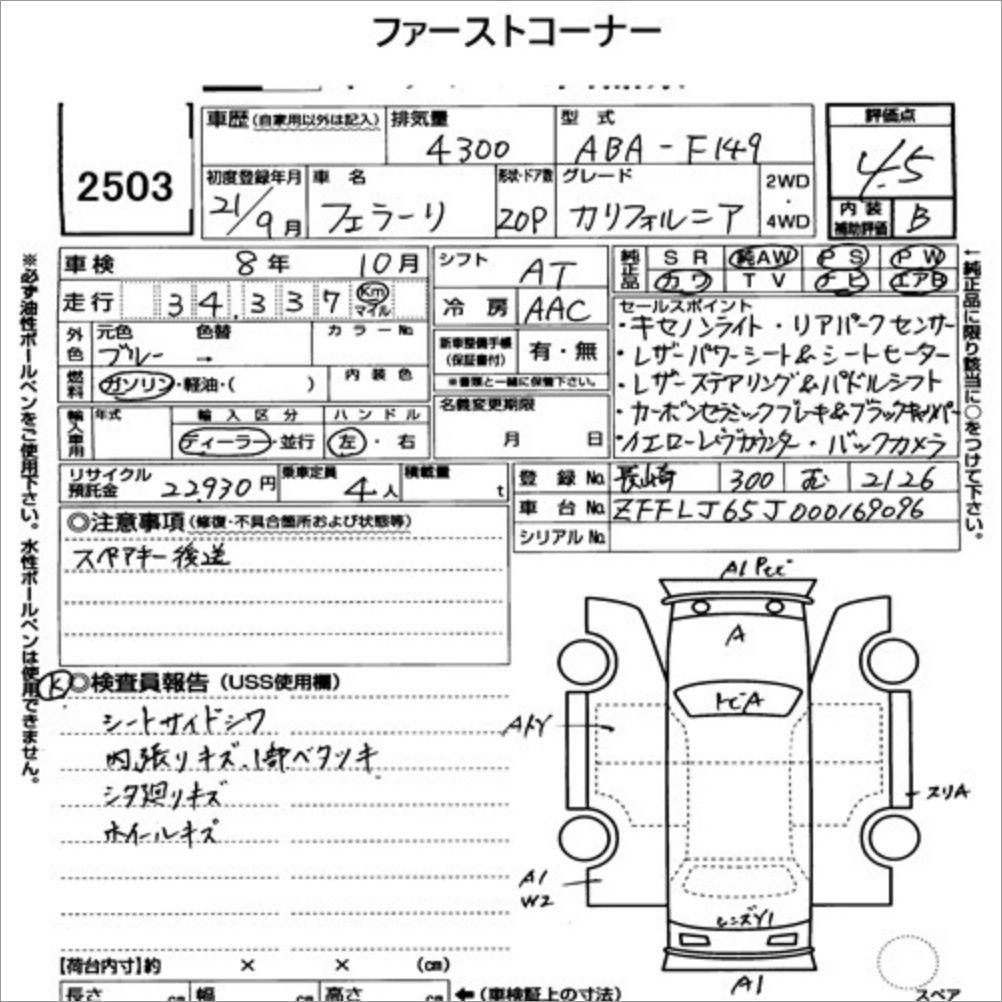 ファーストコーナー
2503
車歴 (自家用以外は記入) 排気量 4300 型式 ABA-F149
評価点 4.5
内装補助評価 B
初度登録年月 21/9月 車名 フェラーリ 形状・ドア数 20P グレード カリフォルニア 2WD・4WD
車検 8年 10月 シフト AT
純正品 SR 純AW PS PW
カワ TV ナビ エアB
走行 34,337 Km マイル 冷房 AAC
外色 元色 ブルー 色替 → カラーNo.
燃料 ガソリン・軽油・( ) 内装色
新車整備手帳 (保証書付) 有・無
※書類と一緒に保管下さい。
輸入車用 年式 輸入区分 ディーラー・並行 ハンドル 左・右
名義変更期限 月 日
セールスポイント
・キセノンライト・リアパークセンサー
・レザーパワーシート&シートヒーター
・レザーステアリング&パドルシフト
・カーボンセラミックブレーキ&ブラックキャリパー
・イエローレヴカウンター・バックカメラ
リサイクル預託金 22930円 乗車定員 4人 積載量 t
登録No. 長崎 300 む 2126
車台No. ZFFLJ65J000169096
シリアルNo.
◎注意事項 (修復・不具合箇所および状態等)
スペアキー後送
◎検査員報告 (USS使用欄)
シートサイドシワ
内張りキズ、1部ベタツキ
シタ廻りキズ
ホイールキズ
A1
A
トビA
Aトγ
スリA
A1
W2
レンズY1
A1
スペア
【荷台内寸】約 × × (㎝)
長さ ㎝ 幅 ㎝ 高さ ㎝ ←(車検証上の寸法)
※必ず油性ボールペンをご使用下さい。水性ボールペンは使用できません。
←純正品に限り該当に○をつけて下さい。